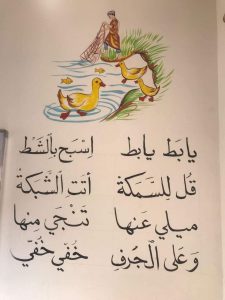 يا بَط يا بط اِسبَح بِالشَّط
قُل لِلسَمَكة أتت الشَبَكة
ميلي عَنها تَنجَي مِنها
وَعَلى الْجُرفِ خُفّي خُفّي